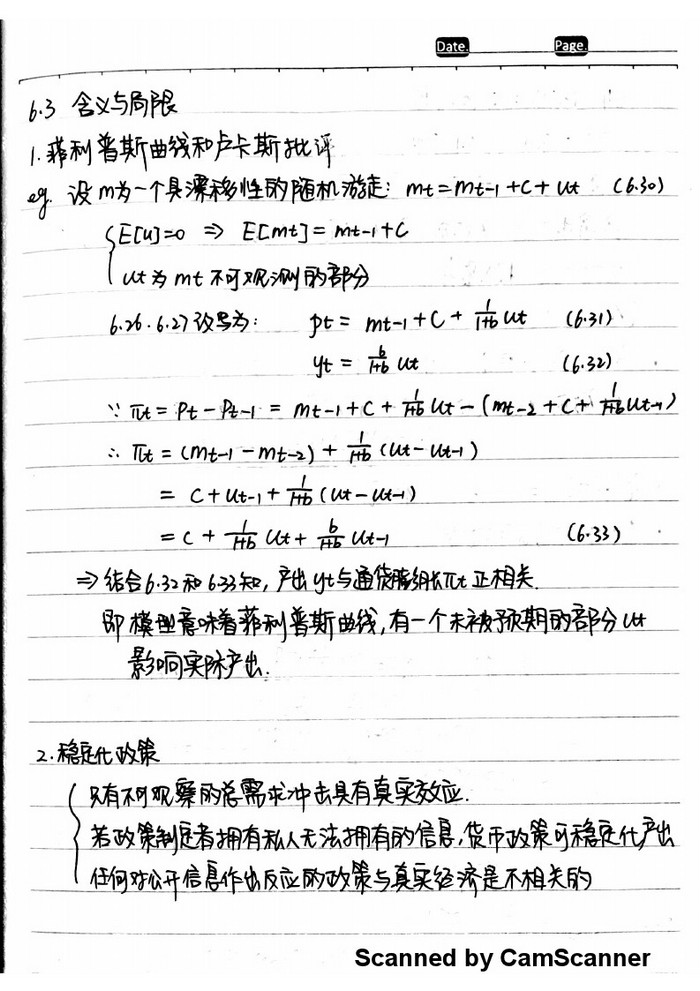 Date.
Page.
6.3 含义与局限
1. 菲利普斯曲线和卢卡斯批评
eg. 设m为一个具漂移性的随机游走: mt = mt-1 + C + ut (6.30)
E[u]=0 ⇒ E[mt] = mt-1 + C
ut为mt不可观测的部分
6.26、6.27改写为: pt = mt-1 + C + 1/(1+b) ut (6.31)
yt = b/(1+b) ut (6.32)
∵ πt = Pt - Pt-1 = mt-1 + C + 1/(1+b) ut - (mt-2 + C + 1/(1+b) ut-1)
∴ πt = (mt-1 - mt-2) + 1/(1+b) (ut - ut-1)
= C + ut-1 + 1/(1+b) (ut - ut-1)
= C + 1/(1+b) ut + b/(1+b) ut-1 (6.33)
⇒ 结合6.32和6.33知, 产出yt与通货膨胀πt正相关.
即模型意味着菲利普斯曲线, 有一个未被预期的部分ut
影响实际产出.
2. 稳定化政策
只有不可观察的总需求冲击具有真实效应.
若政策制定者拥有私人无法拥有的信息, 货币政策可稳定化产出
任何对公开信息作出反应的政策与真实经济是不相关的
Scanned by CamScanner